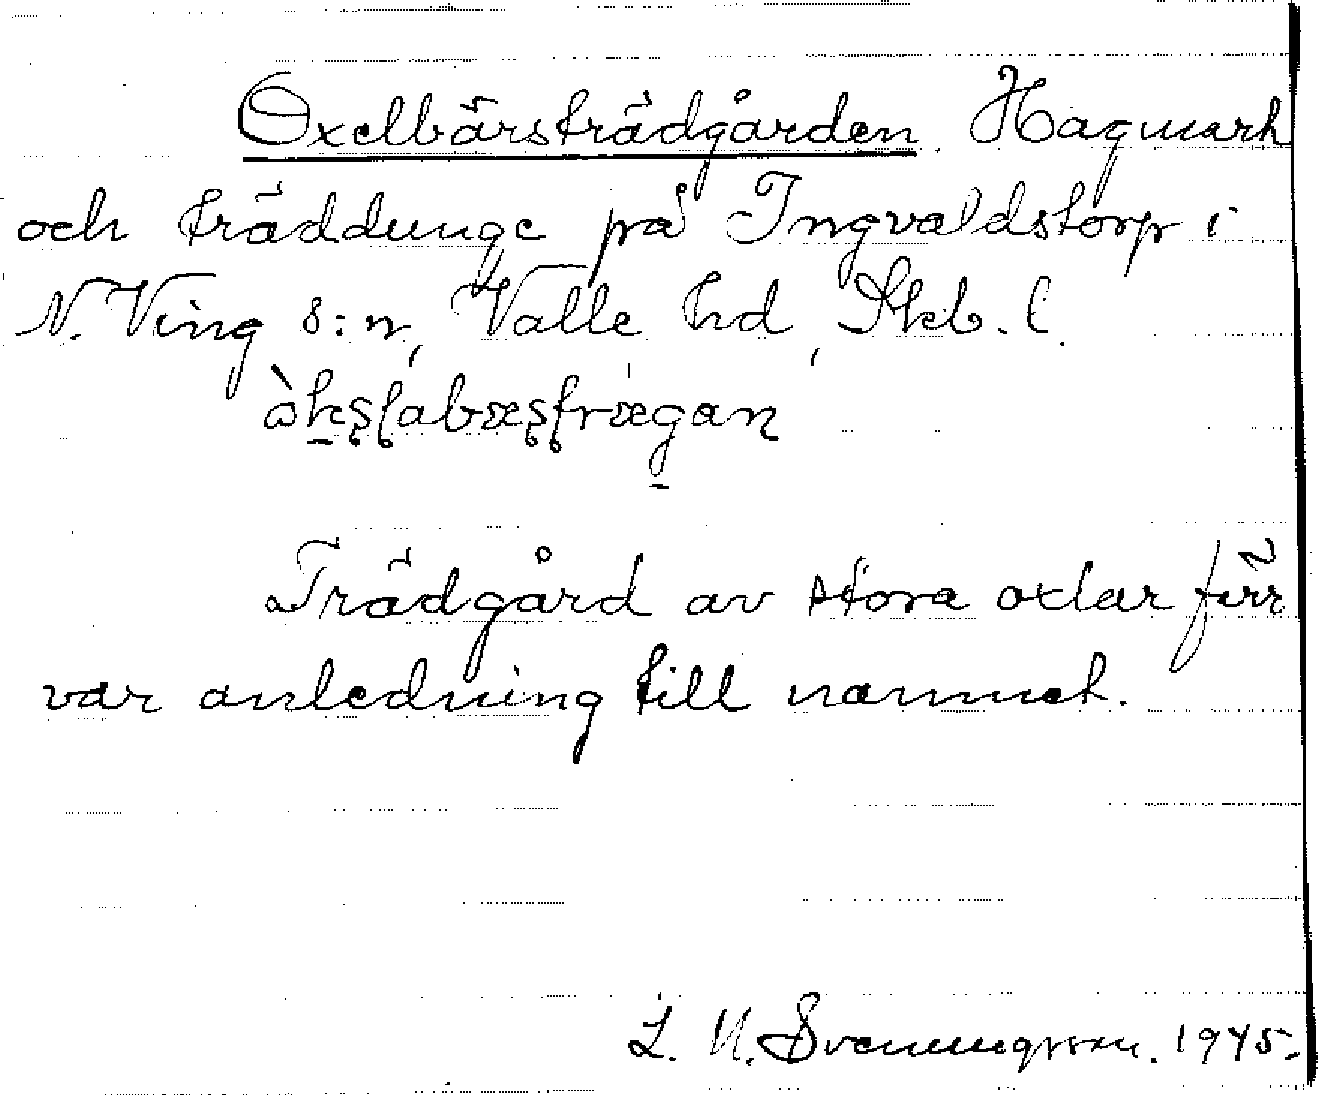 Oxelbärsträdgården. Hagmark
och träddunge på Ingvaldstorp i
N. Ving s:n, Valle hd, Skb. l.
Trädgård av stora oxlar förr
var anledning till namnet.
L. N. Svenungsson. 1945.